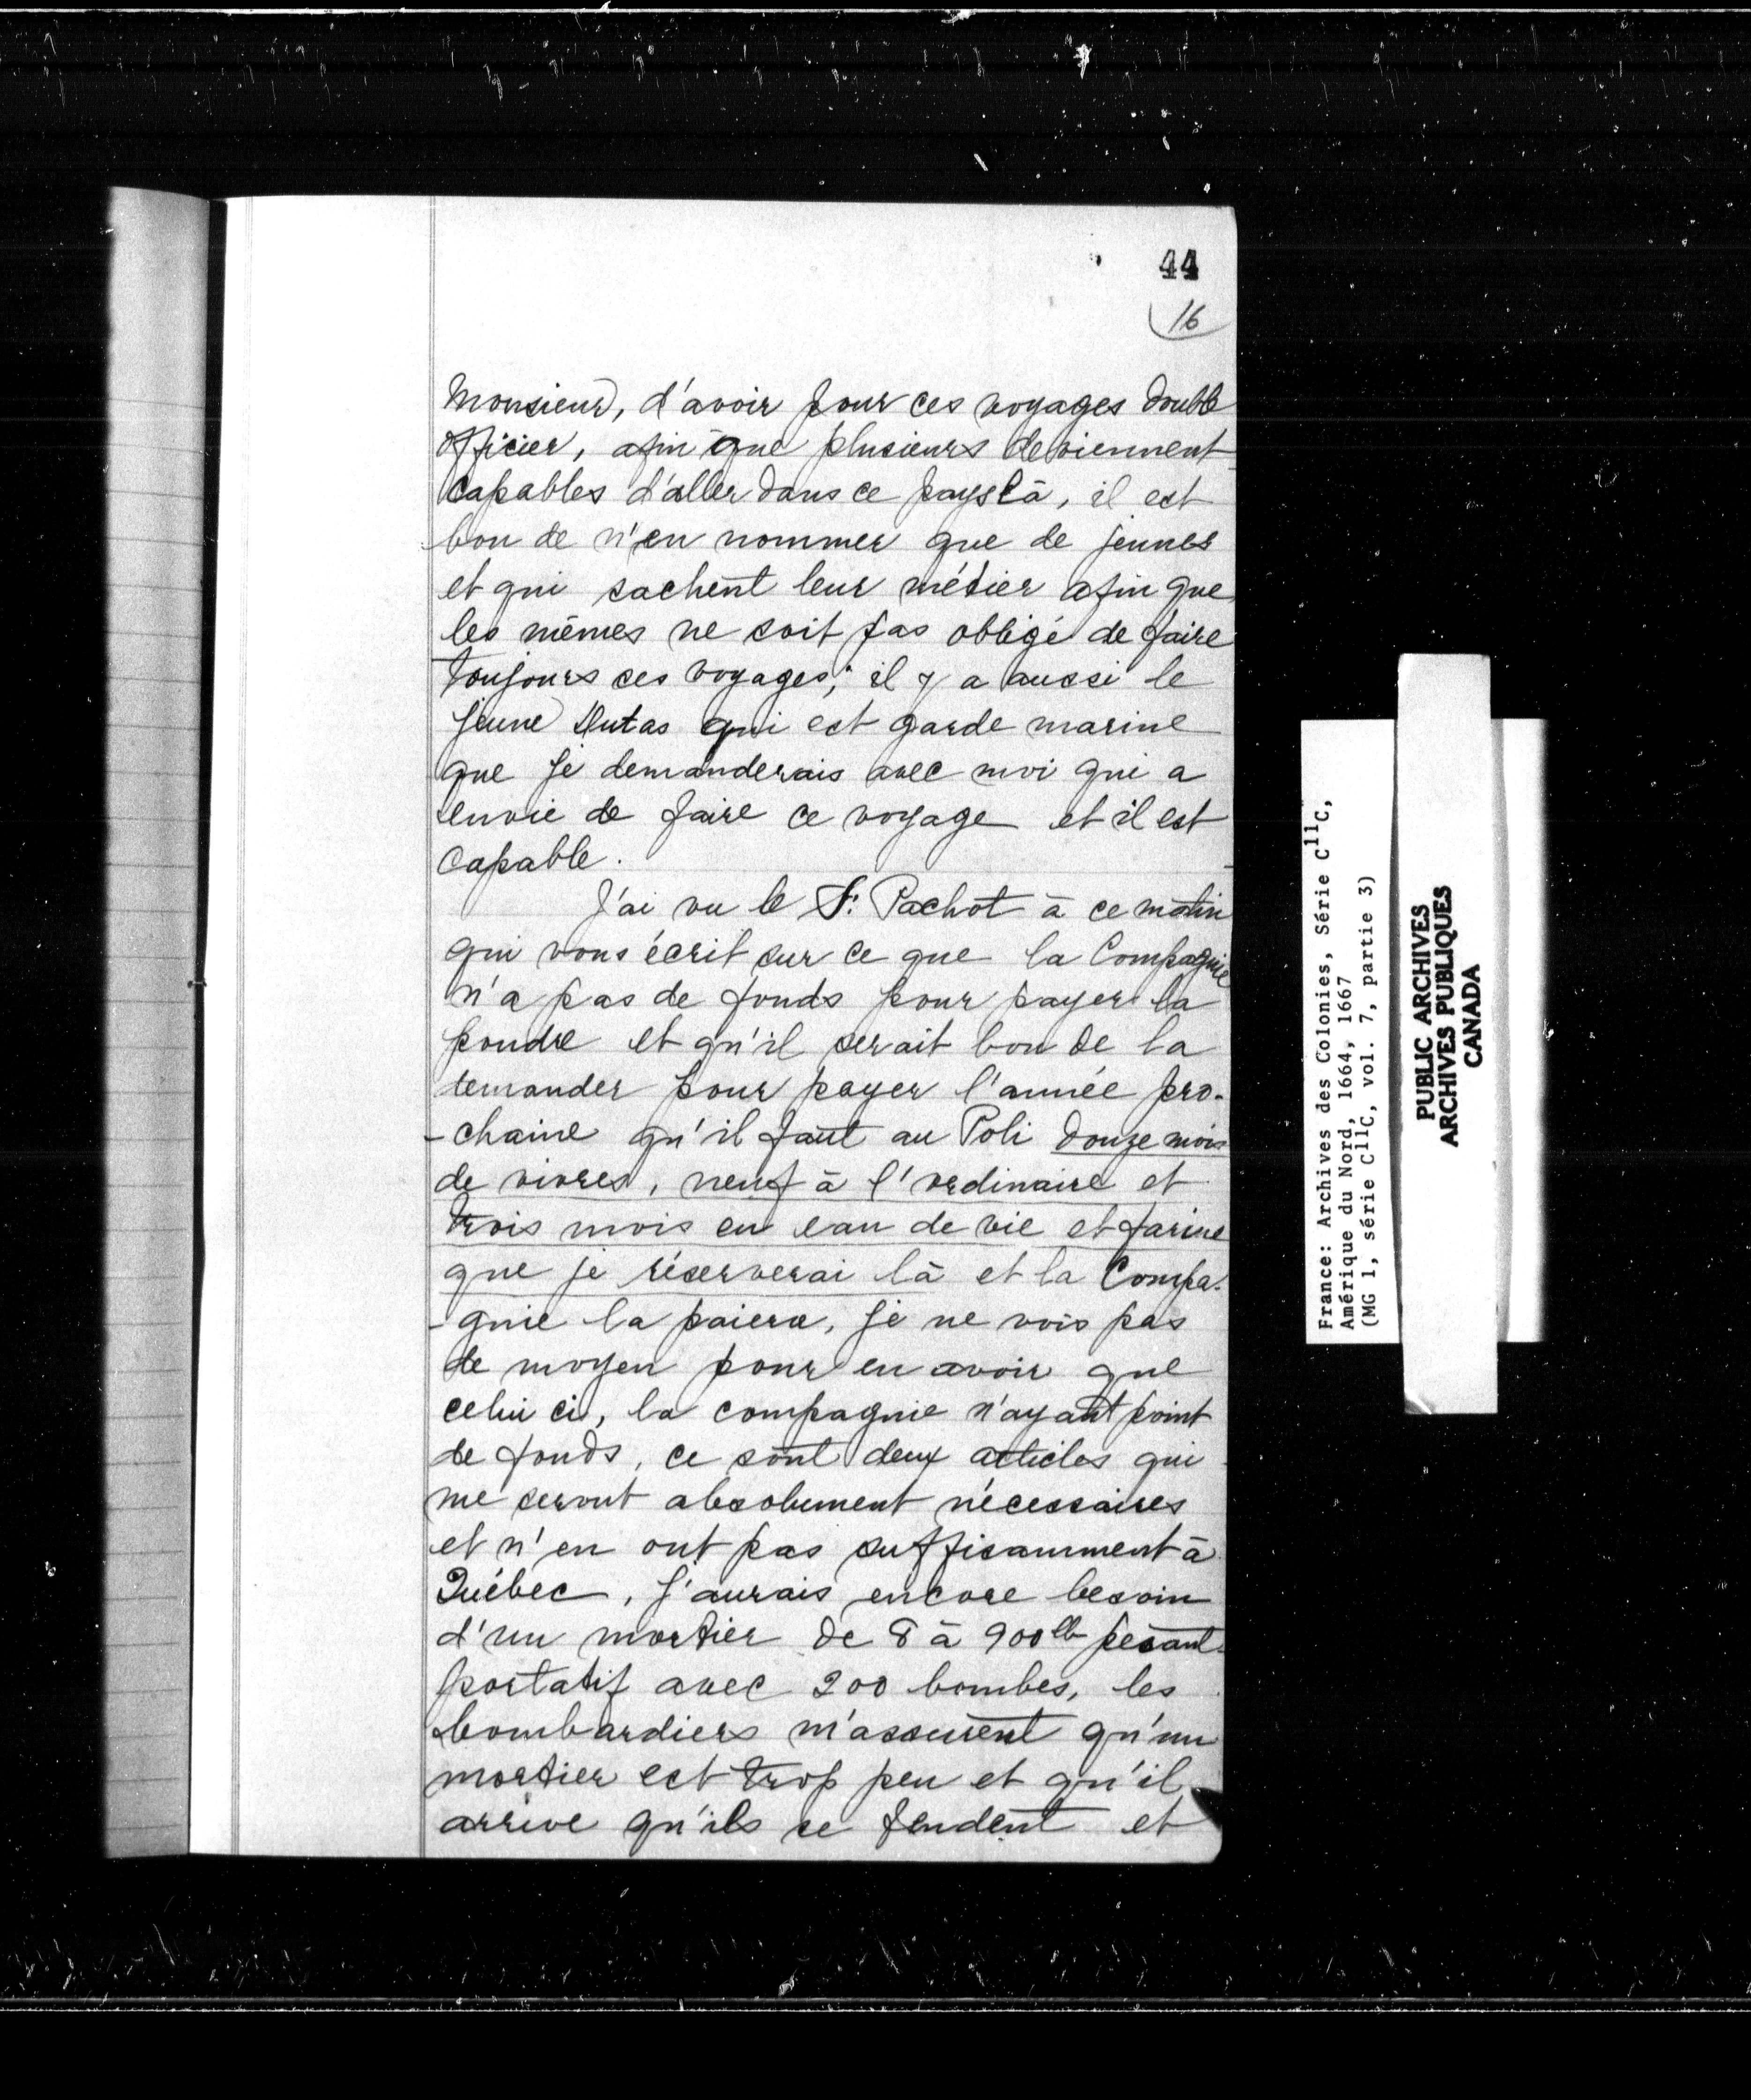 44
16
Monsieur, d'avoir pour ces voyages double
officier, afin que plusieurs deviennent
capables d'aller dans ce pays là, il est
bon de n'en nommer que de jeunes
et qui sachent leur métier afin que
les mêmes ne soit pas obligé de faire
toujours ces voyages; il y a aussi le
jeune Dutas qui est garde marine
que je demanderais avec moi qui a
envie de faire ce voyage et il est
capable.
J'ai vu le S. Pachot à ce matin
qui vous écrit sur ce que la Compagnie
n'a pas de fonds pour payer la
poudre et qu'il serait bon de la
demander pour payer l'année pro-
-chaine qu'il faut au Poli douze mois
de vivres, neuf à l'ordinaire et
trois mois en eau de vie et farine
que je réserverai là et la Compa-
-gnie la paiera, je ne vois pas
de moyen pour en avoir que
celui ci, la compagnie n'ayant point
de fonds, ce sont deux articles qui
me seront absolument nécessaires
et n'en ont pas suffisamment à
Québec, j'aurais encore besoin
d'un mortier de 8 à 900 lb pesant
portatif avec 200 bombes, les
bombardiers m'assurent qu'un
mortier est trop peu et qu'il
arrive qu'ils se fendent et
France: Archives des Colonies, Série C11C,
Amérique du Nord, 1664, 1667
(MG 1, série C11C, vol. 7, partie 3)
PUBLIC ARCHIVES
ARCHIVES PUBLIQUES
CANADA